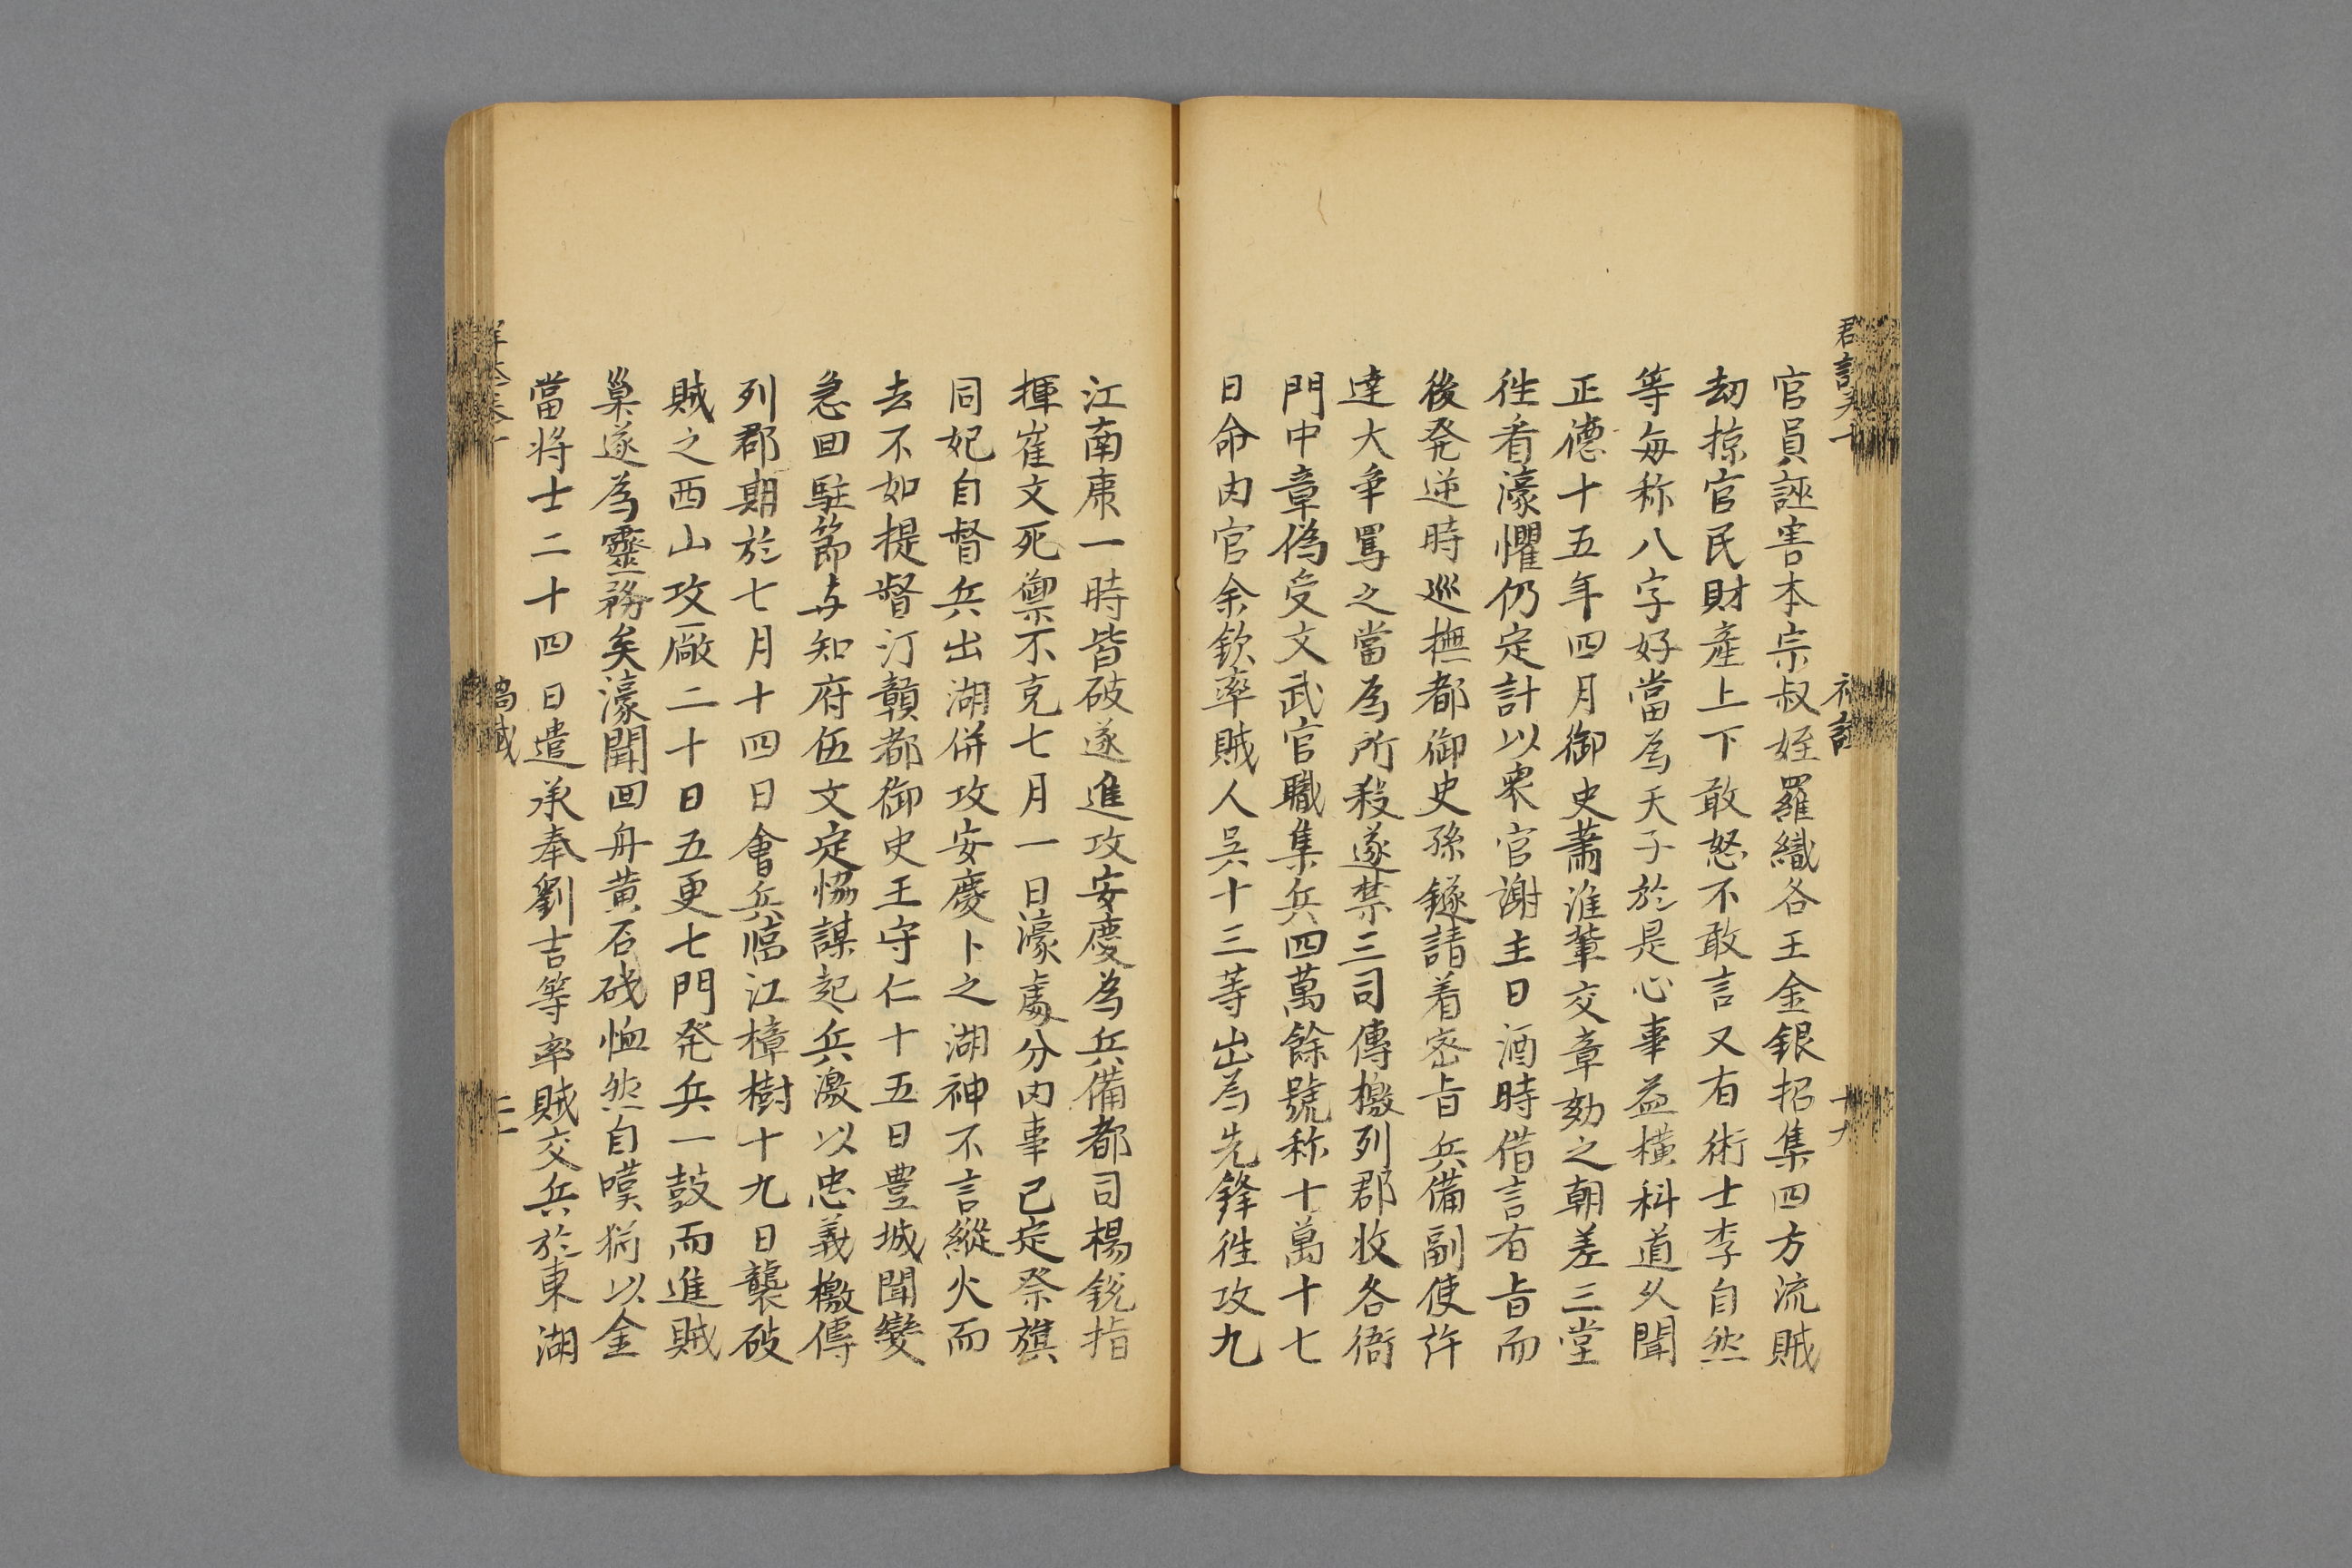 官員誣害本宗叔姪羅織各王金銀招集四方流賊
劫掠官民財産上下敢怒不敢言又有術士李自然
等每称八字好當為天子於是心事益橫科道乆聞
正德十五年四月御史蕭淮葷交章劾之朝差三堂
徃看濠懼仍定計以衆官謝主日酒時借言有旨而
後発逆時巡撫都御史孫鐩請着密旨兵備副使許
逹大爭罵之當為所殺遂禁三司傳檄列郡收各衙
門印章偽受文武官職集兵四萬餘號称十萬十七
日命内官余欽率賊人吳十三等出為先鋒徃攻九
江南康一時皆破遂進攻安慶為兵備都司楊銳指
揮崔文死禦不克七月一日濠處分内事已定祭旗
同妃自督兵出湖併攻安慶卜之湖神不言縱火而
去不如提督汀贛都御史王守仁十五日豊城聞變
急回駐節与知府伍文定恊謀起兵激以忠義檄傳
列郡期於七月十四日會兵臨江樟樹十九日襲破
賊之西山攻厰二十日五更七門発兵一鼓而進賊
巢遂為靈務矣濠聞回舟黄石磯恤然自嘆猶以金
當将士二十四日遣承奉劉吉等率賊交兵於東湖